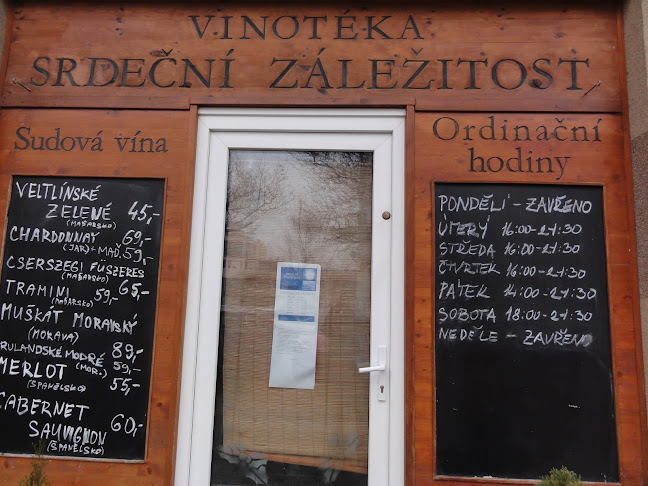 VINOTÉKA
SRDEČNÍ ZÁLEŽITOST
Sudová vína
VELTLÍNSKÉ
ZELENÉ 45,-
(MAĎARSKO)
CHARDONNAY 69,-
(JAR) + MAĎ. 59,-
CSERSZEGI FUSZERES
(MAĎARSKO) 65,-
TRAMINI 59,-
(MAĎARSKO)
MUŠKÁT MORAVSKÝ
(MORAVA) 89,-
RULANDSKÉ MODRÉ
(MOR.) 59,-
MERLOT 55,-
(ŠPANĚLSKO)
CABERNET
SAUVIGNON 60,-
(ŠPANĚLSKO)
Ordinační
hodiny
PONDĚLÍ - ZAVŘENO
ÚTERÝ 16:00-21:30
STŘEDA 16:00-21:30
ČTVRTEK 16:00-21:30
PÁTEK 14:00-21:30
SOBOTA 18:00-21:30
NEDĚLE - ZAVŘENO